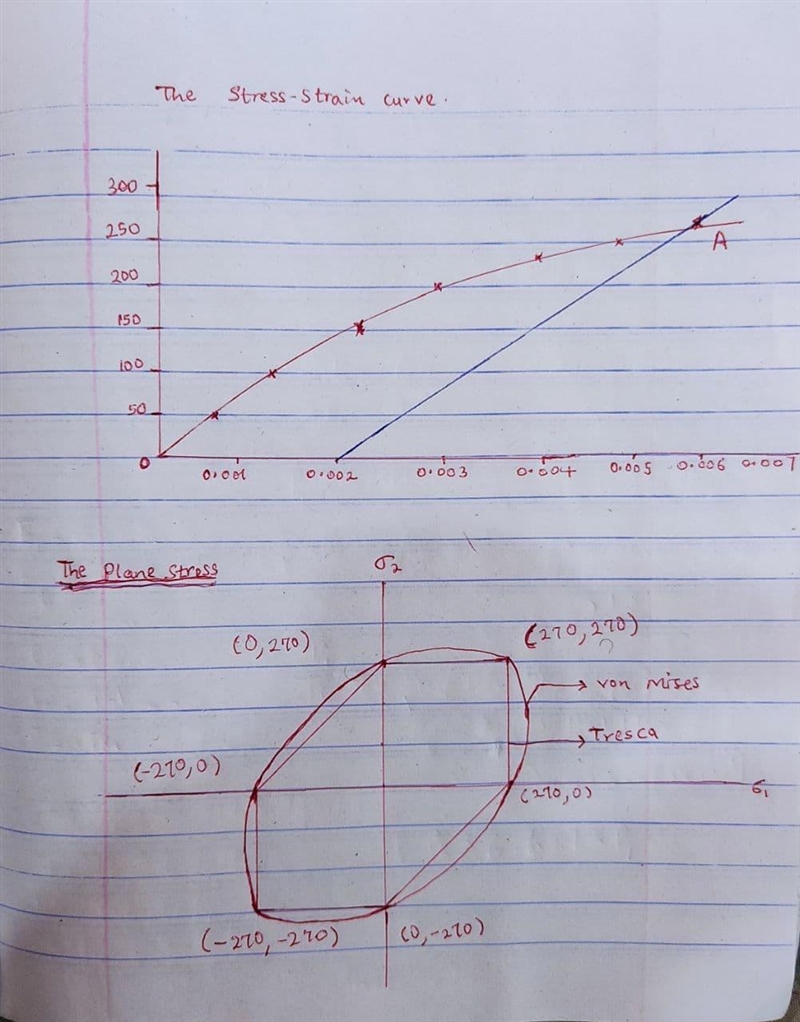 The Stress-Strain curve.
300
250
200
150
100
50
0
0.001 0.002 0.003 0.004 0.005 0.006 0.007
A
The Plane Stress
σ2
(0,270) (270,270)
von Mises
Tresca
(-270,0)
(270,0) σ1
(-270,-270) (0,-270)